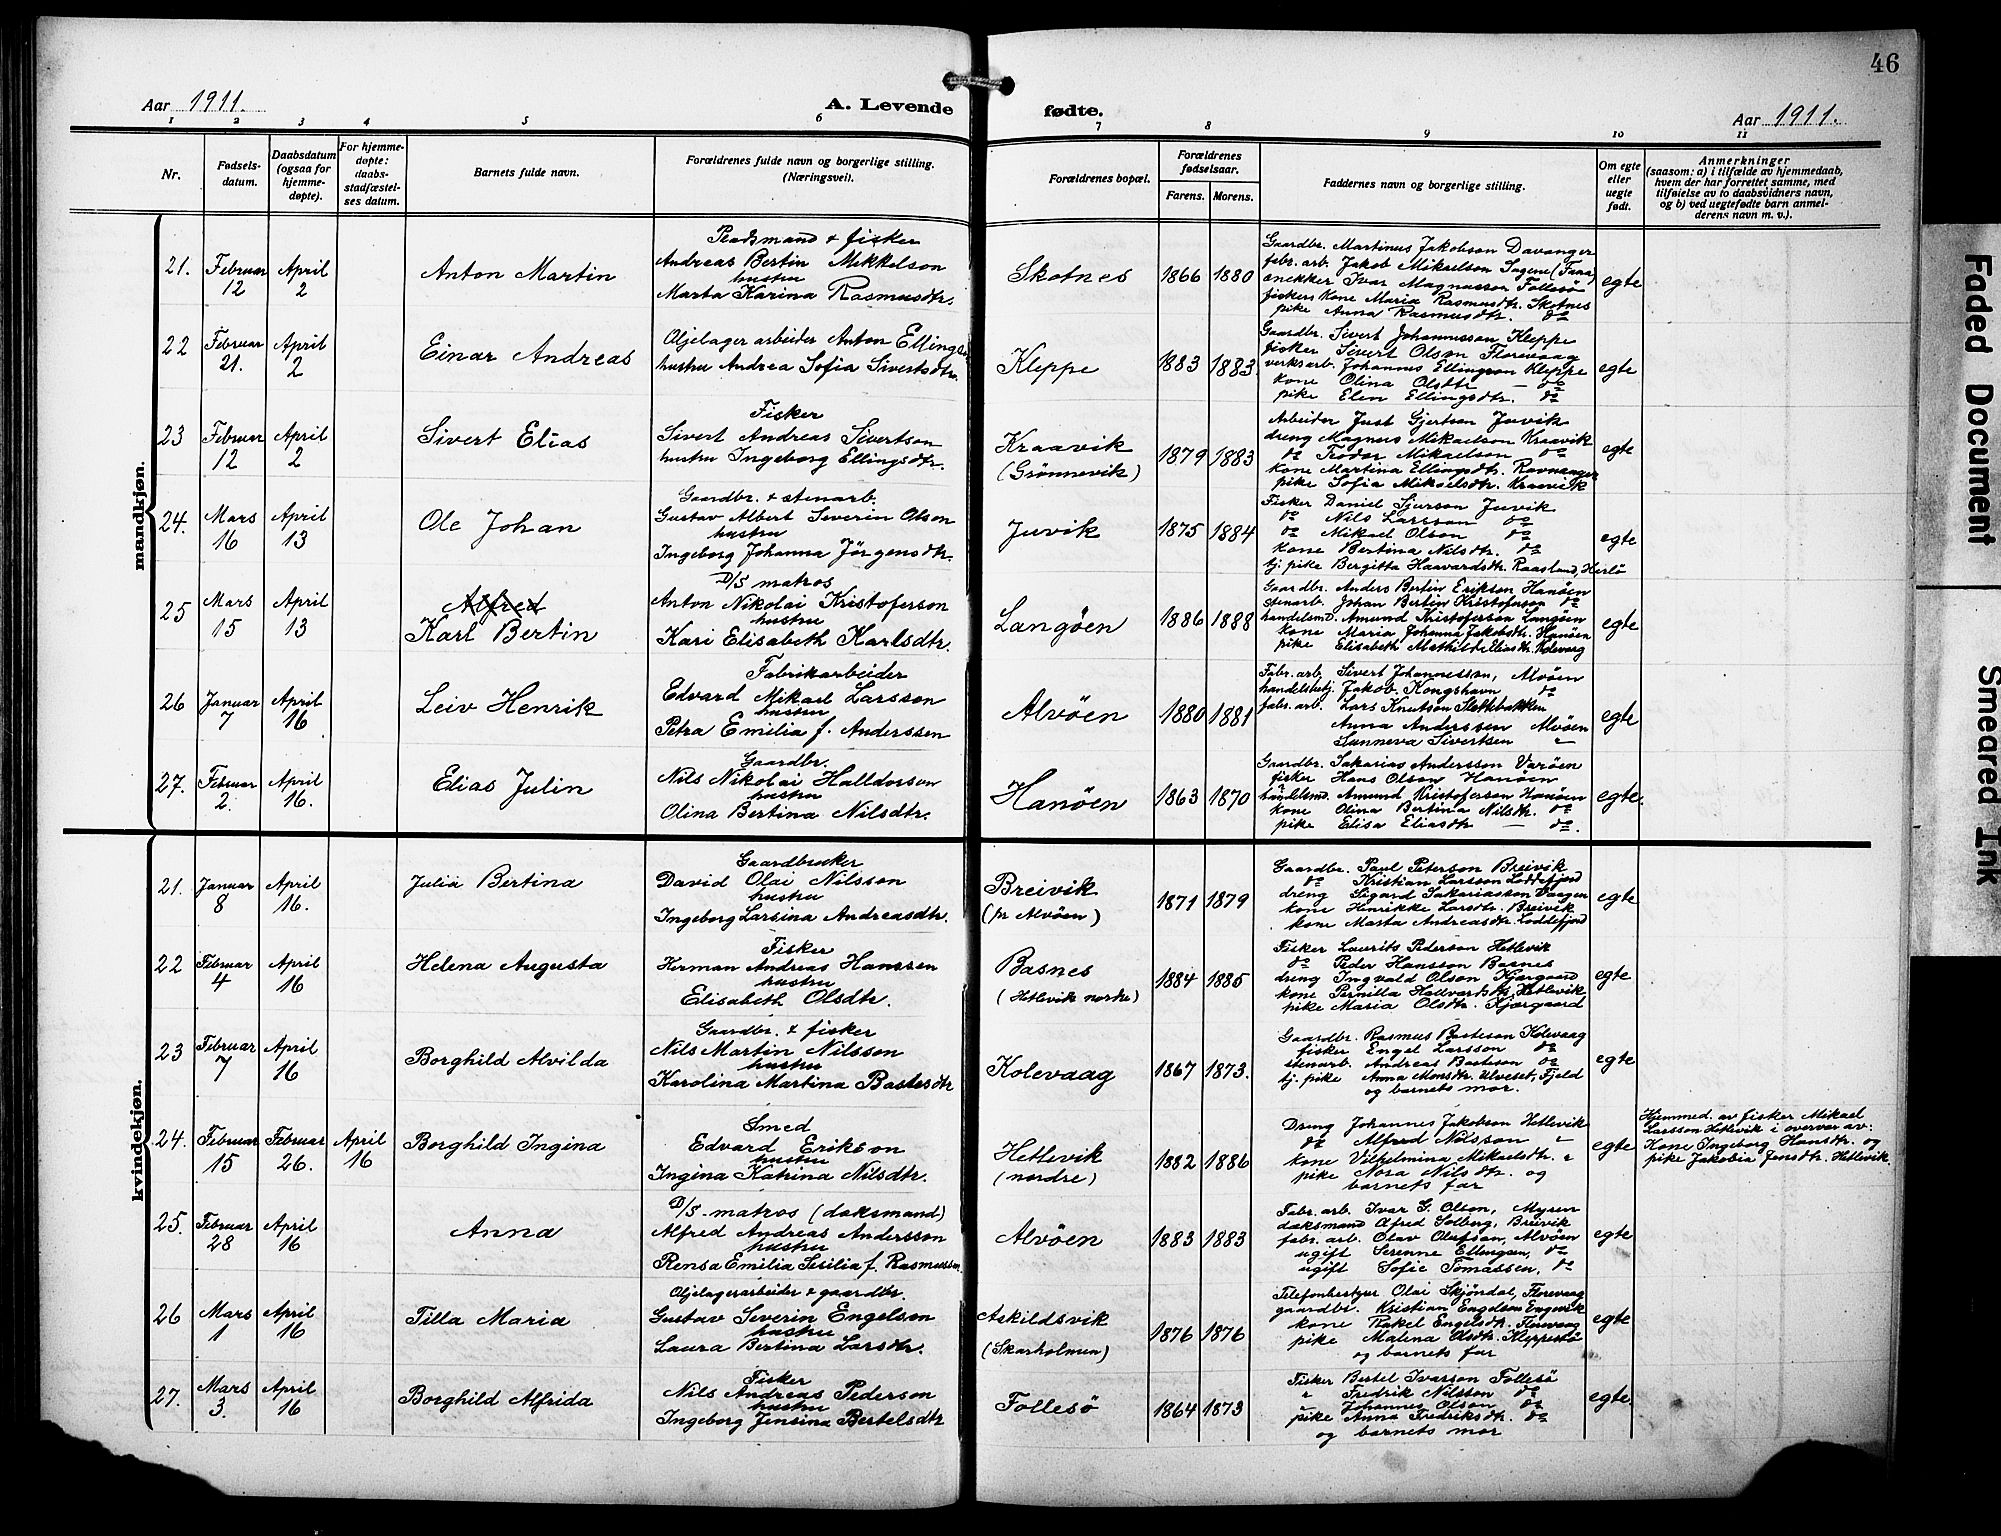 46
Aar 1911.
A. Levende fødte.
Aar 1911.
1 2 3 4 5 6 7 8 9 10 11
Nr.
Fødsels-
datum.
Daabsdatum
(ogsaa for
hjemme-
døpte).
For hjemme-
døpte:
daabs-
stadfæstel-
ses datum.
Barnets fulde navn.
Forældrenes fulde navn og borgerlige stilling.
(Næringsvei).
Forældrenes bopæl.
Forældrenes
fødselsaar.
Farens. Morens.
Faddernes navn og borgerlige stilling.
Om egte
eller
uegte
født.
Anmerkninger
(saasom: a) i tilfælde av hjemmedaab,
hvem der har forrettet samme, med
tilføielse av to daabsvidners navn,
og b) ved uegtefødte barn anmel-
derens navn m. v.).
mandkjøn.
21. Februar 12 April 2 Anton Martin
& fisker
Andreas Bertin Mikkelson
hustru
Marta Karina Rasmusdtr.
Skotnes 1866 1880
Gaardbr. Martinus Jakobson Davanger
fabr. arb. Jakob Mikaelson Sagene (Fana)
snekker Ivar Magnusson Follesö
fiskers kone Maria Rasmusdtr. Skotnes
pike Anna Rasmusdtr. do
egte
22 Februar 21. April 2 Einar Andreas
Oljelager arbeider Anton Ellingson
hustru Andrea Sofia Sivertsdtr.
Kleppe 1883 1883.
Gaardbr. Sivert Johannesson Kleppe
fisker Sivert Olson Florevaag
verksarb. Johannes Ellingson Kleppe
kone Olina Olsdtr — do
pike Elen Ellingsdtr. do
egte
23 Februar 12 April 2 Sivert Elias
Fisker
Sivert Andreas Sivertson
hustru Ingeborg Ellingsdtr.
Kraavik
(Grønnevik)
1879 1883
Arbeider Just Gjertson Juvik
dreng Magnus Mikaelson Kraavik
do Teodor Mikaelson do
kone Martina Ellingsdtr. Ravnanger
pike Sofia Mikaelsdtr. Kraavik
egte
24. Mars 16 April 13 Ole Johan
Gaardbr. & stenarb.
Gustav Albert Severin Olson
hustru
Ingeborg Johanna Jörgensdtr.
Juvik 1875 1884
Fisker Daniel Sjurson Juvik
do Nils Larsson do
do Mikael Olson do
kone Bertina Nilsdtr. do
tj. pike Bergitta Haavardsdtr. Raasland, Herlö
egte
25 Mars 15 April 13 Alfred
Karl Bertin
D/S matros
Anton Nikolai Kristoferson
hustru
Kari Elisabeth Karlsdtr.
Langöen 1886 1888
Gaardbr. Anders Bertin Erikson Hanöen
stenarb. Johan Bertin Kristoferson do
handelsmd. Amund Kristoferson Langöen
kone Maria Johanna Jakobsdtr. Hanöen
pike Elisabeth Mathilde Eliasdtr. Kolevaag
egte
26 Januar 7 April 16 Leiv Henrik
Fabrikarbeider
Edvard Mikael Larsson
hustru
Petra Emilia f. Anderssen
Alvöen 1880 1881
Fabr. arb. Sivert Johannessen, Alvöen
handelsbetj. Jakob Kongshavn do
fabr. arb. Lars Knutson Slettebakken
Anna Anderssen Alvöen
Sunneva Sivertsen "
egte
27. Februar 2. April 16. Elias Julin
Gaardbr.
Nils Nikolai Halldorson
hustru
Olina Bertina Nilsdtr.
Hanöen 1863 1870
Gaardbr. Sakarias Andersson Varöen
fisker Hans Olson Hanöen
handelsmd. Amund Kristoferson Hanöen
kone Olina Bertina Nilsdtr. do
pike Elisa Eliasdtr — do.
egte.
kvindekjøn.
21. Januar 8 April 16. Julia Bertina
Gaardbruker
David Olai Nilsson
hustru
Ingeborg Larsina Andreasdtr.
Breivik
(pr Alvöen)
1871 1879
Gaardbr. Paul Peterson Breivik
do Kristian Larsson Loddefjord
dreng Sigard Sakariasson Vaagen
kone Henrikke Larsdtr. Breivik
kone Marta Andreasdtr. Loddefjord
egte
22 Februar 4 April 16 Helena Augusta
Fisker
Herman Andreas Hanssen
hustru
Elisabeth Olsdtr.
Basnes
(Hetlevik nordre)
1884 1885
Fisker Laurits Pederson Hetlevik
do Peder Hansson Basnes
dreng Ingvald Olson Kjærgaard
kone Pernilla Hallvardsdtr. Hetlevik
pike Maria Olsdtr. Kjærgaard
egte
23 Februar 7 April 16 Borghild Alvilda
Gaardbr. & fisker
Nils Martin Nilsson
hustru
Karolina Martina Bastesdtr
Kolevaag 1867 1873.
Gaardbr. Rasmus Basteson Kolevaag
fisker Engel Larsson do
stenarb. Andreas Basteson do
tj. pike Anna Monsdtr. Ulveset, Fjeld
og barnets mor.
egte
24. Februar 15 Februar 26. April 16 Borghild Ingina
Smed
Edvard Erikson
hustru
Ingina Katrina Nilsdtr.
Hetlevik
(nordre)
1882 1886
Dreng Johannes Jakobson Hetlevik
do Alfred Nilsson "
kone Vilhelmina Mikaelsdtr. "
pike Nora Nilsdtr. og
barnets far
egte
Hjemmed. av fisker Mikael
Larsson Hetlevik i overvær av:
Kone Ingeborg Hansdtr. og
pike Jakobia Jensdtr. Hetlevik.
25. Februar 28 April 16 Anna
D/S-matros (doksmand)
Alfred Andreas Andersson
hustru
Rensa Emilia Sesilia f. Rasmussen.
Alvöen 1883 1883
Fabr. arb. Ivar G. Olson, Myren
doksmand Alfred Solberg, Breivik
fabr. arb. Olav Olafson, Alvöen
ugift Serenne Ellingsen, do
ugift Sofie Tomassen, do
egte
26 Mars 1 April 16 Tilla Maria
Oljelagerarbeider & gaardbr.
Gustav Severin Engelson
hustru
Laura Bertina Larsdtr.
Askildsvik
(Skarholmen)
1876 1876
Telefonbestyrer Olai Skjöndal, Florevaag
gaardbr. Kristian Engelson Engevik
kone Rakel Engelsdtr. Florevaag
pike Malena Olsdtr. Kleppestö
og barnets far
egte
27. Mars 3. April 16 Borghild Alfrida
Fisker
Nils Andreas Pederson
hustru
Ingeborg Jensina Bertelsdtr
Follesö 1864 1873
Fisker Bertel Ivarsson Follesö
" Fredrik Nilsson do
" Johannes Olson do
pike Anna Fredriksdtr. do
og barnets mor
egte.
Faded Document
Smeared Ink